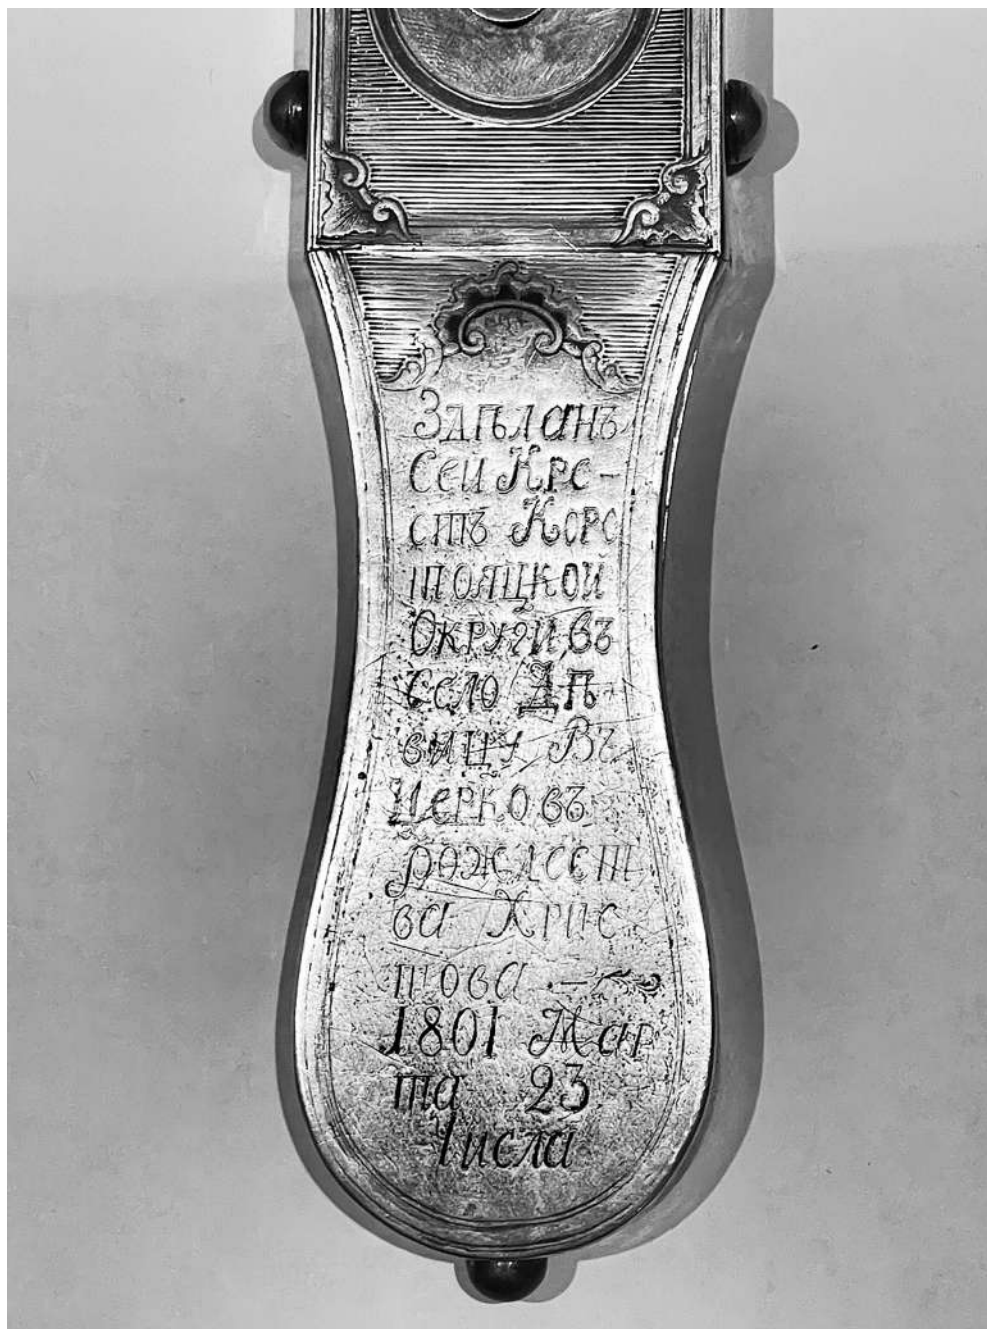 Здѣланъ
Сеи Кре-
стъ Коро
тояцкой
Округи въ
Село Дѣ
вицу Въ
Церковъ
рождест
ва Хрис
това
1801 Мар
та 23
Числа